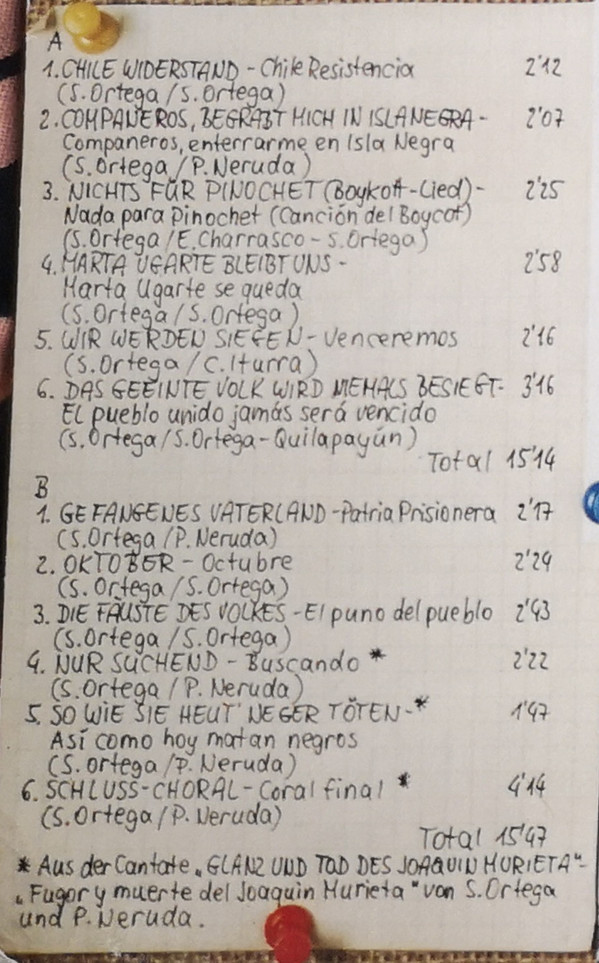 A
1. CHILE WIDERSTAND - Chile Resistencia 2'12
(S. Ortega / S. Ortega)
2. COMPAÑEROS, BEGRABT MICH IN ISLA NEGRA - 2'07
Companeros, enterrarme en Isla Negra
(S. Ortega / P. Neruda)
3. NICHTS FÜR PINOCHET (Boykott-Lied) - 2'25
Nada para Pinochet (Canción del Boycot)
(S. Ortega / E. Charrasco - S. Ortega)
4. MARTA UGARTE BLEIBT UNS - 2'58
Marta Ugarte se queda
(S. Ortega / S. Ortega)
5. WIR WERDEN SIEGEN - Venceremos 2'16
(S. Ortega / C. Iturra)
6. DAS GEEINTE VOLK WIRD NIEMALS BESIEGT - 3'16
El pueblo unido jamás será vencido
(S. Ortega / S. Ortega - Quilapayún)
Total 15'14
B
1. GEFANGENES VATERLAND - Patria Prisionera 2'17
(S. Ortega / P. Neruda)
2. OKTOBER - Octubre 2'29
(S. Ortega / S. Ortega)
3. DIE FÄUSTE DES VOLKES - El puno del pueblo 2'43
(S. Ortega / S. Ortega)
4. NUR SUCHEND - Buscando * 2'22
(S. Ortega / P. Neruda)
5. SO WIE SIE HEUT' NEGER TÖTEN - * 1'47
Así como hoy matan negros
(S. Ortega / P. Neruda)
6. SCHLUSS-CHORAL - Coral final * 4'14
(S. Ortega / P. Neruda)
Total 15'47
* Aus der Cantate „GLANZ UND TOD DES JOAQUIN MURIETA" -
„Fugor y muerte del Joaquin Murieta" von S. Ortega
und P. Neruda.